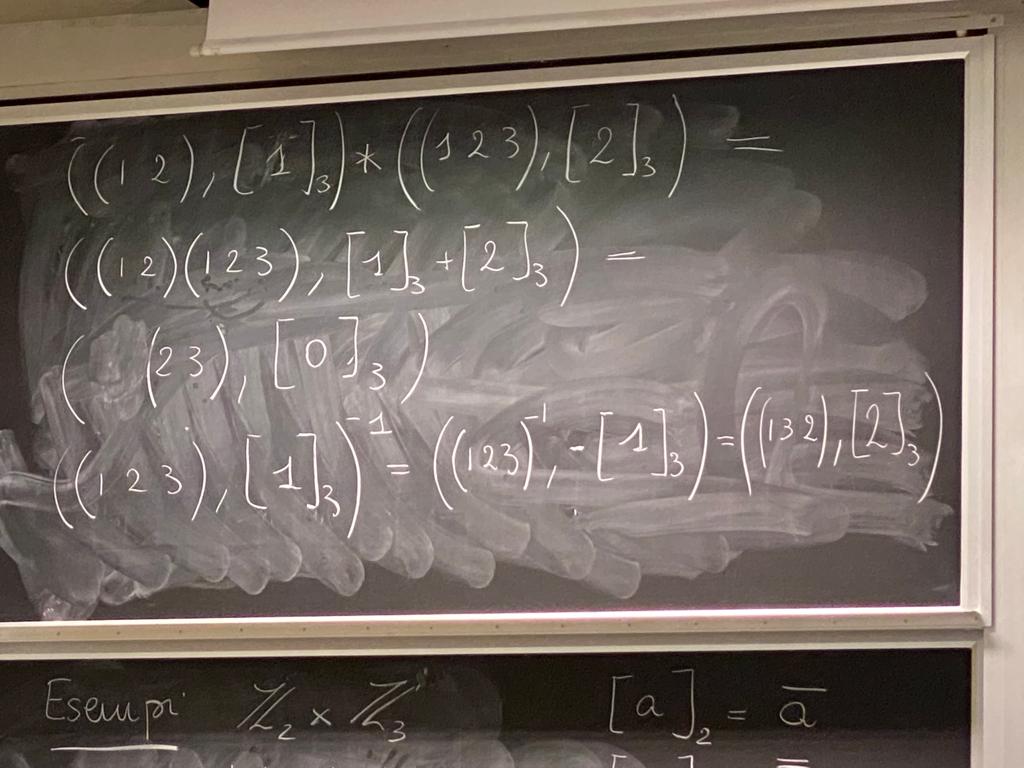 ((1 2), [1]₃) * ((1 2 3), [2]₃) =
((1 2)(1 2 3), [1]₃ + [2]₃) =
( (2 3), [0]₃)
((1 2 3), [1]₃)⁻¹ = ((1 2 3)⁻¹, -[1]₃) = ((1 3 2), [2]₃)
Esempi ℤ₂ × ℤ₃ [a]₂ = a̅